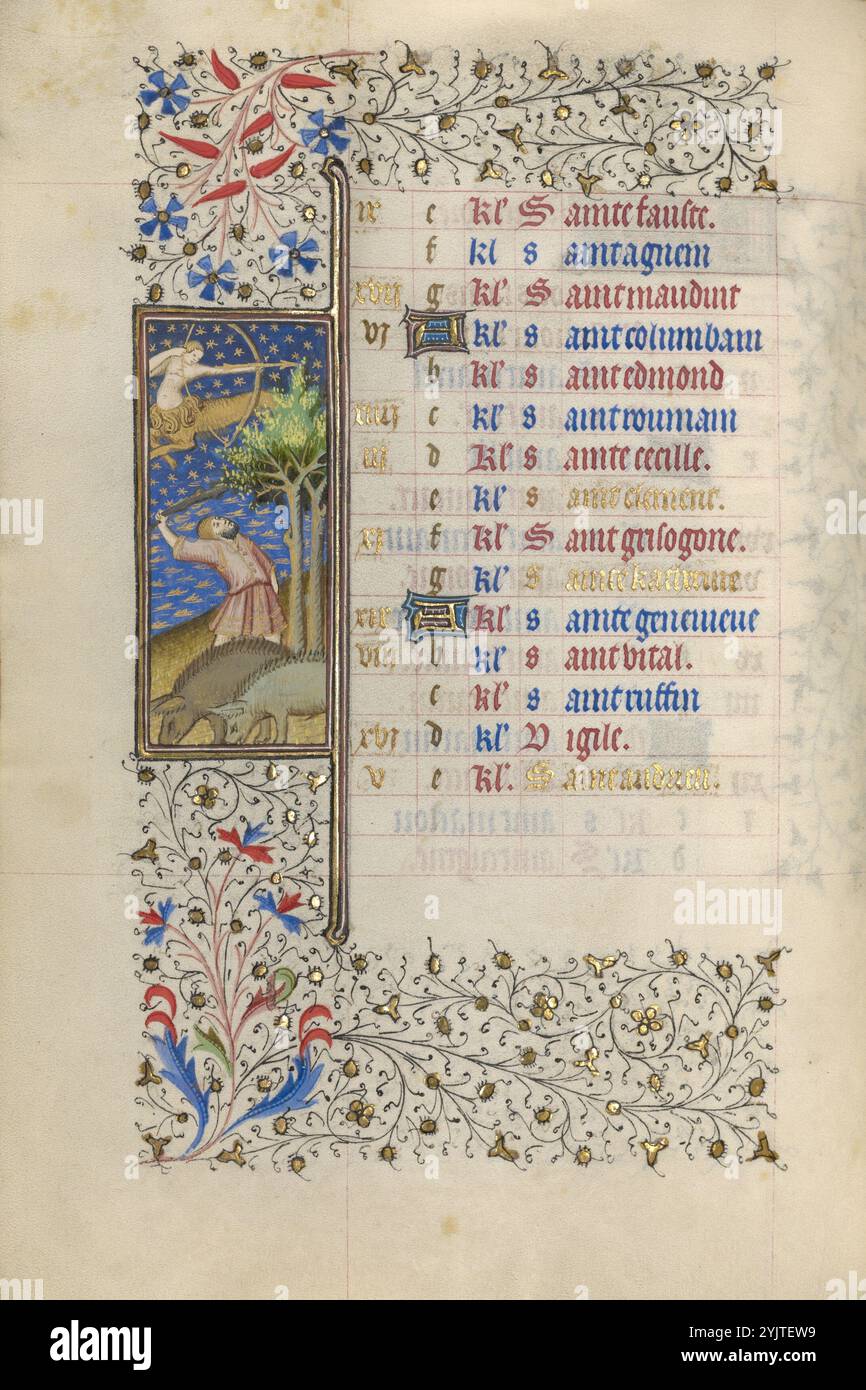 ix c kl' Sainte fauste.
f kl saint agnem
xvij g kl' Saint maudint
vj A kl' saint columbam
b kl' saint edmond
xiiij c kl' saint roumain
iij d kl' Sainte cecille.
e kl' saint clement.
xj f kl' Saint grisogone.
g kl' Sainte katherine
xix A kl' sainte genevieve
viij b kl' saint vital.
c kl' saint ruffin
xvj d kl' Vigile.
v e kl'. Saint andrieu.
alamy
Image ID: 2YJTEW9
www.alamy.com